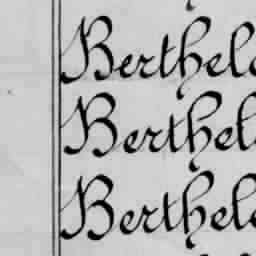 Berthelo
Berthel
Berthelo